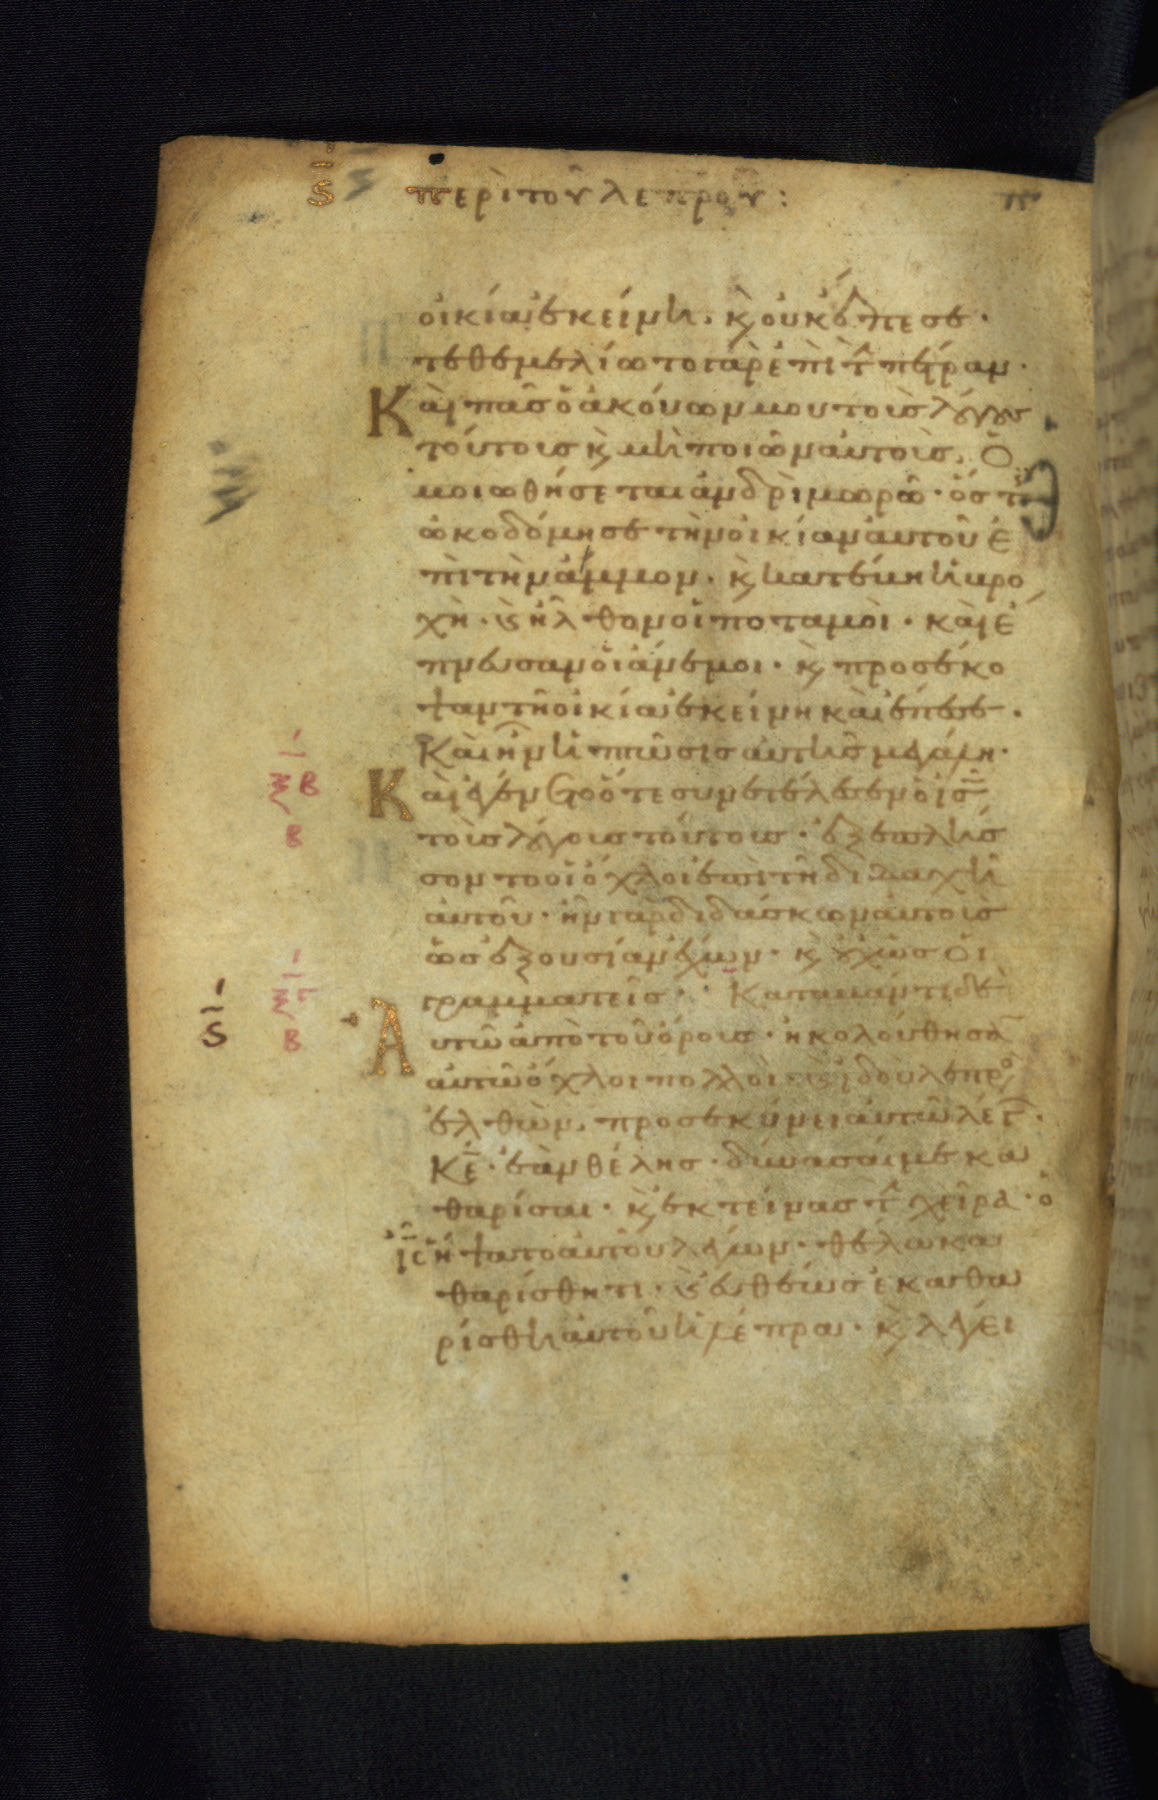 ς περὶ τοῦ λεπροῦ :
οἰκία ἐκείνη, κ̀ οὐκ ἔπεσε ·
τεθεμελίωτο γὰρ ἐπὶ τ̂ πέτραν ·
Καὶ πᾶσ ὁ ἀκούων μου τοὺσ λόγουσ
τούτουσ κ̀ μὴ ποιῶν αὐτοὺσ, ὁ
μοιωθήσεται ἀνδρὶ μωρῶ · ὅστισ
ὠκοδόμησε τὴν οἰκίαν αὐτοῦ ἐ
πὶ τὴν ἄμμον · κ̀ κατέβη ἡ βρο
χὴ · κ̀ ἦλθον οἱ ποταμοὶ · καὶ ἔ
πνευσαν οἱ ἄνεμοι · κ̀ προσέκο
ψαν τῆ οἰκία ἐκείνη καὶ ἔπεσε ·
Καὶ ἦν ἡ πτῶσισ αὐτῆσ μεγάλη ·
Καὶ ἐγένετο ὅτε συνετέλεσεν ὁ ισ
τοὺσ λόγουσ τούτουσ · ἐξεπλήσ
σοντο οἱ ὄχλοι ἐπὶ τῆ διδαχῆ
αὐτοῦ · ἦν γὰρ διδάσκων αὐτοὺσ
ὡσ ἐξουσίαν ἔχων · κ̀ οὐχ ὡσ οἱ
γραμματεῖσ · Καταβάντι δὲ
Αὐτῶ ἀπὸ τοῦ ὄρουσ · ἠκολούθησα
αὐτῶ ὄχλοι πολλοὶ · κ̀ ἰδοὺ λεπρὸ
ἐλθὼν, προσεκύνει αὐτῶ λέγ ·
Κε · ἐὰν θέλησ · δύνασαί με κα
θαρίσαι · κ̀ ἐκτείνασ τ̂ χεῖρα · ὁ
ισ ἥψατο αὐτοῦ λέγων · θέλω κα
θαρίσθητι · κ̀ εὐθέωσ ἐκαθα
ρίσθη αὐτοῦ ἡ λέπρα · κ̀ λέγει